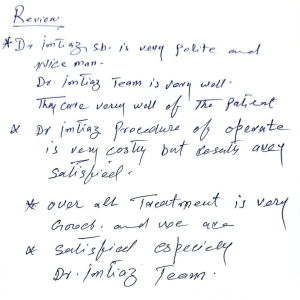 Review
* Dr imtiaz sb. is very polite and
nice man.
Dr. imtiaz Team is very well.
They care very well of The patient
* Dr imtiaz Procedure of operate
is very costly but results avey
satisfied.
* over all Treatment is very
Good. and we are
* satisfied especiely
Dr. Imtiaz Team.